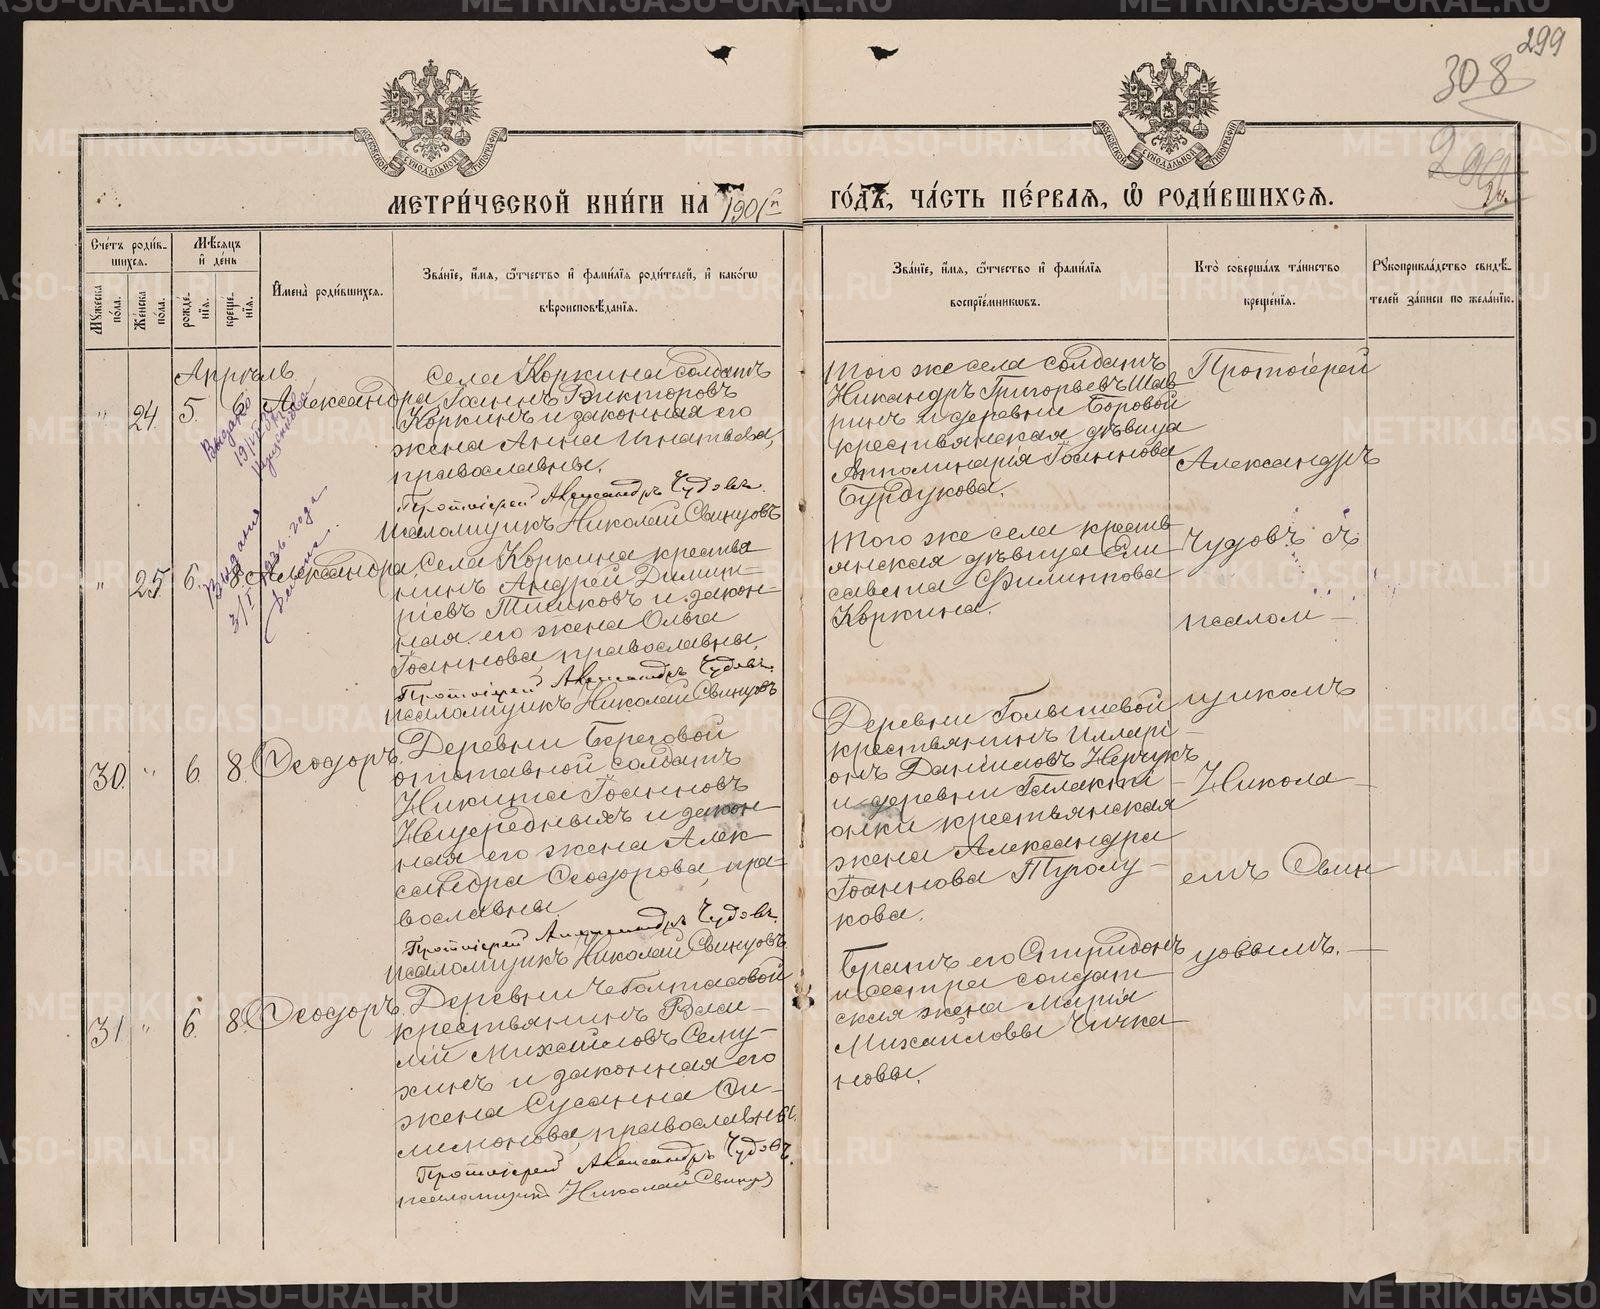 299
308
МЕТРИ́ЧЕСКОЙ КНИ́ГИ НА 1901й ГО́ДЪ, ЧА́СТЬ ПЕ́РВАЯ, Ѿ РОДИ́ВШИХСЯ.
Сче́тъ роди́в-
шихся.
Му́жеска по́ла.
Же́нска по́ла.
Мѣ́сяцъ
и҆ де́нь
рожде́-
нїя.
креще́-
нїя.
И҆мена̀ роди́вшихся.
Зва́нїе, и҆́мя, ѻ҆́тчество и҆ фами́лїя роди́телей, и҆ како́гѡ
вѣроисповѣ́данїя.
Зва́нїе, и҆́мя, ѻ҆́тчество и҆ фами́лїя
воспрїе́мникѡвъ.
Кто̀ соверша́лъ та́инство
креще́нїя.
Рꙋкоприкла́дство свидѣ́-
телей за́писи по жела́нїю.
Апрѣль
" 24. 5. 6. Александра
Села Коркина солдатъ
Іоаннъ Викторовъ
Коркинъ и законная его
жена Анна Игнатьева,
православны.
Протоіерей Александръ Чудовъ.
Псаломщикъ Николай Свинцовъ
Того же села солдатъ
Никандръ Григорьевъ Шав-
ринъ и деревни Боровой
крестьянская дѣвица
Апполинарія Іоаннова
Бурдукова.
Протоіерей
Александръ
Чудовъ съ
псалом-
щикомъ
Никола-
емъ Свин-
цовымъ.
Выдано
" 25 6. 8. Александра
Села Коркина крестья-
нинъ Андрей Димит-
ріевъ Тишковъ и закон-
ная его жена Ольга
Іоаннова, православны.
Протоіерей Александръ Чудовъ.
Псаломщикъ Николай Свинцовъ
Того же села крестья-
янская дѣвица Ели-
савета Филиппова
Коркина.
30. " 6. 8. Ѳеодоръ.
Деревни Береговой
отставной солдатъ
Никита Іоанновъ
и закон-
ная его жена Алек-
сандра Ѳеодорова, пра-
вославны.
Протоіерей Александръ Чудовъ.
Псаломщикъ Николай Свинцовъ
Деревни
крестьянинъ Иларі-
онъ Даніиловъ
и деревни Галакті-
онки крестьянская
жена Александра
Іоаннова Туголу-
кова.
31. " 6. 8. Ѳеодоръ.
Деревни
крестьянинъ Васи-
лій Михайловъ Сему-
хинъ и законная его
жена Сусанна Фи-
лимонова, православны.
Протоіерей Александръ Чудовъ.
Псаломщикъ Николай Свинцов
Братъ его Спиридонъ
и сестра солдат-
ская жена Марія
Михайловы Чичка-
новы.